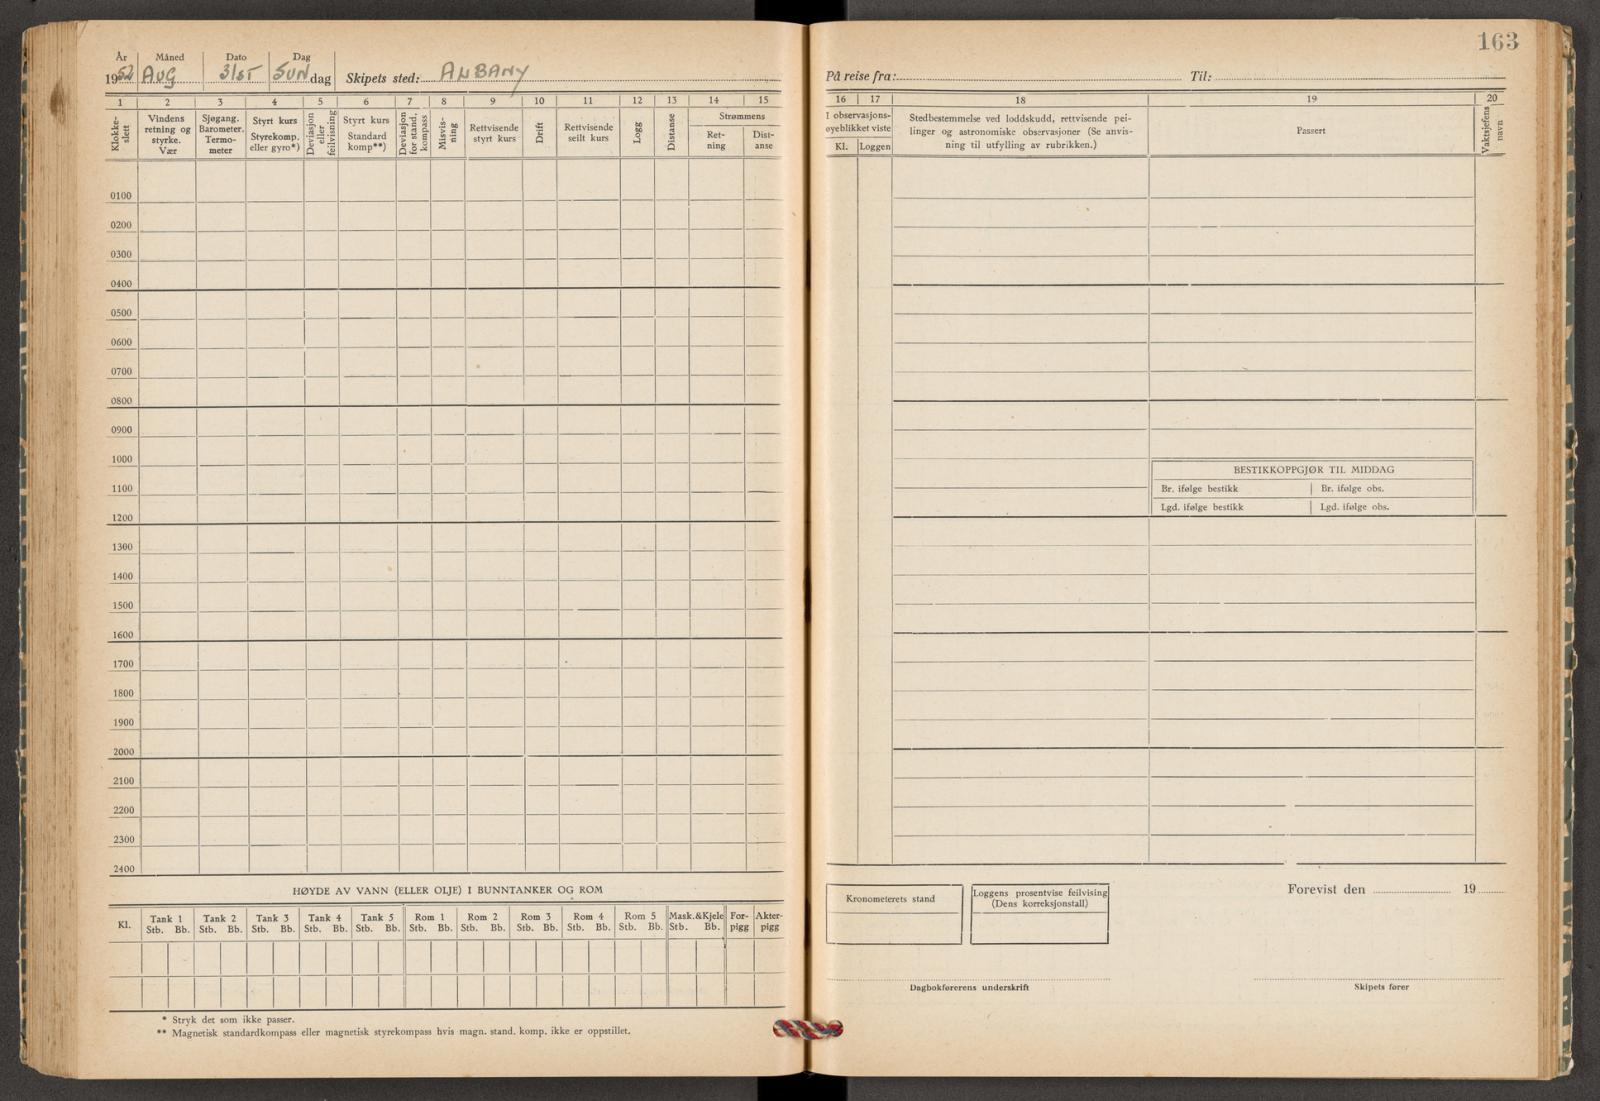 163
År Måned Dato Dag
1952 AUG 31ST SUN dag Skipets sted: ALBANY
På reise fra: Til:
1 2 3 4 5 6 7 8 9 10 11 12 13 14 15
Klokke-slett
Vindens retning og styrke. Vær
Sjøgang. Barometer. Termo-meter
Styrt kurs Styrekomp. eller gyro*)
Deviasjon eller feilvisning
Styrt kurs Standard komp**)
Deviasjon for stand. kompass
Misvis-ning
Rettvisende styrt kurs
Drift
Rettvisende seilt kurs
Logg
Distanse
Strømmens
Ret-ning
Dist-anse
16 17 18 19 20
I observasjons-øyeblikket viste
Kl. Loggen
Stedbestemmelse ved loddskudd, rettvisende pei-
linger og astronomiske observasjoner (Se anvis-
ning til utfylling av rubrikken.)
Passert
Vaktsjefens navn
0100
0200
0300
0400
0500
0600
0700
0800
0900
1000
1100
1200
1300
1400
1500
1600
1700
1800
1900
2000
2100
2200
2300
2400
BESTIKKOPPGJØR TIL MIDDAG
Br. ifølge bestikk Br. ifølge obs.
Lgd. ifølge bestikk Lgd. ifølge obs.
HØYDE AV VANN (ELLER OLJE) I BUNNTANKER OG ROM
Kl.
Tank 1 Tank 2 Tank 3 Tank 4 Tank 5 Rom 1 Rom 2 Rom 3 Rom 4 Rom 5 Mask.&Kjele For-pigg Akter-pigg
Stb. Bb. Stb. Bb. Stb. Bb. Stb. Bb. Stb. Bb. Stb. Bb. Stb. Bb. Stb. Bb. Stb. Bb. Stb. Bb. Stb. Bb.
* Stryk det som ikke passer.
** Magnetisk standardkompass eller magnetisk styrekompass hvis magn. stand. komp. ikke er oppstillet.
Kronometerets stand
Loggens prosentvise feilvising
(Dens korreksjonstall)
Forevist den 19
Dagbokførerens underskrift
Skipets fører